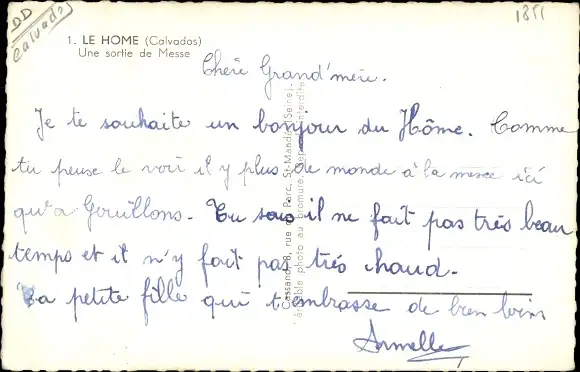 DD
Calvados
1851
1. LE HOME (Calvados)
Une sortie de Messe
Chère Grand'mère.
Je te souhaite un bonjour du Hôme. Comme
tu peuse le voir il y plus de monde à la messe ici
qu'a Gouillons. Tu sais il ne fait pas très beau
temps et il n'y fait pas très chaud.
Ta petite fille qui t'embrasse de bien loin
Armelle
Cassano, 8, rue du Parc, St-Mandé (Seine).
Véritable photo au bromure. Reproduction interdite